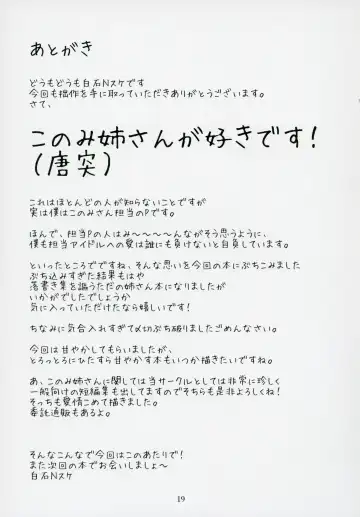 あとがき
どうもどうも白石Nスケです
今回も拙作を手に取っていただきありがとうございます。
さて、
このみ姉さんが好きです!
(唐突)
これはほとんどの人が知らないことですが
実は僕はこのみさん担当のPです。
ほんで、担当Pの人はみ〜〜〜〜んながそう思うように、
僕も担当アイドルへの愛は誰にも負けないと自負しています。
といったところでですね、そんな思いを今回の本にぶちこみました
ぶち込みすぎた結果もはや
落書き集を謳うただの姉さん本になりましたが
いかがでしたでしょうか
気に入っていただけたなら嬉しいです!
ちなみに気合入れすぎて〆切ぶち破りましたごめんなさい。
今回は甘やかしてもらいましたが、
とろっとろにひたすら甘やかす本もいつか描きたいですね。
あ、このみ姉さんに関しては当サークルとしては非常に珍しく
一般向けの短編集も出してますのでそちらも是非よろしくね!
そっちも愛情こめて描きました。
委託通販もあるよ。
そんなこんなで今回はこのあたりで!
また次回の本でお会いしましょ〜
白石Nスケ
19